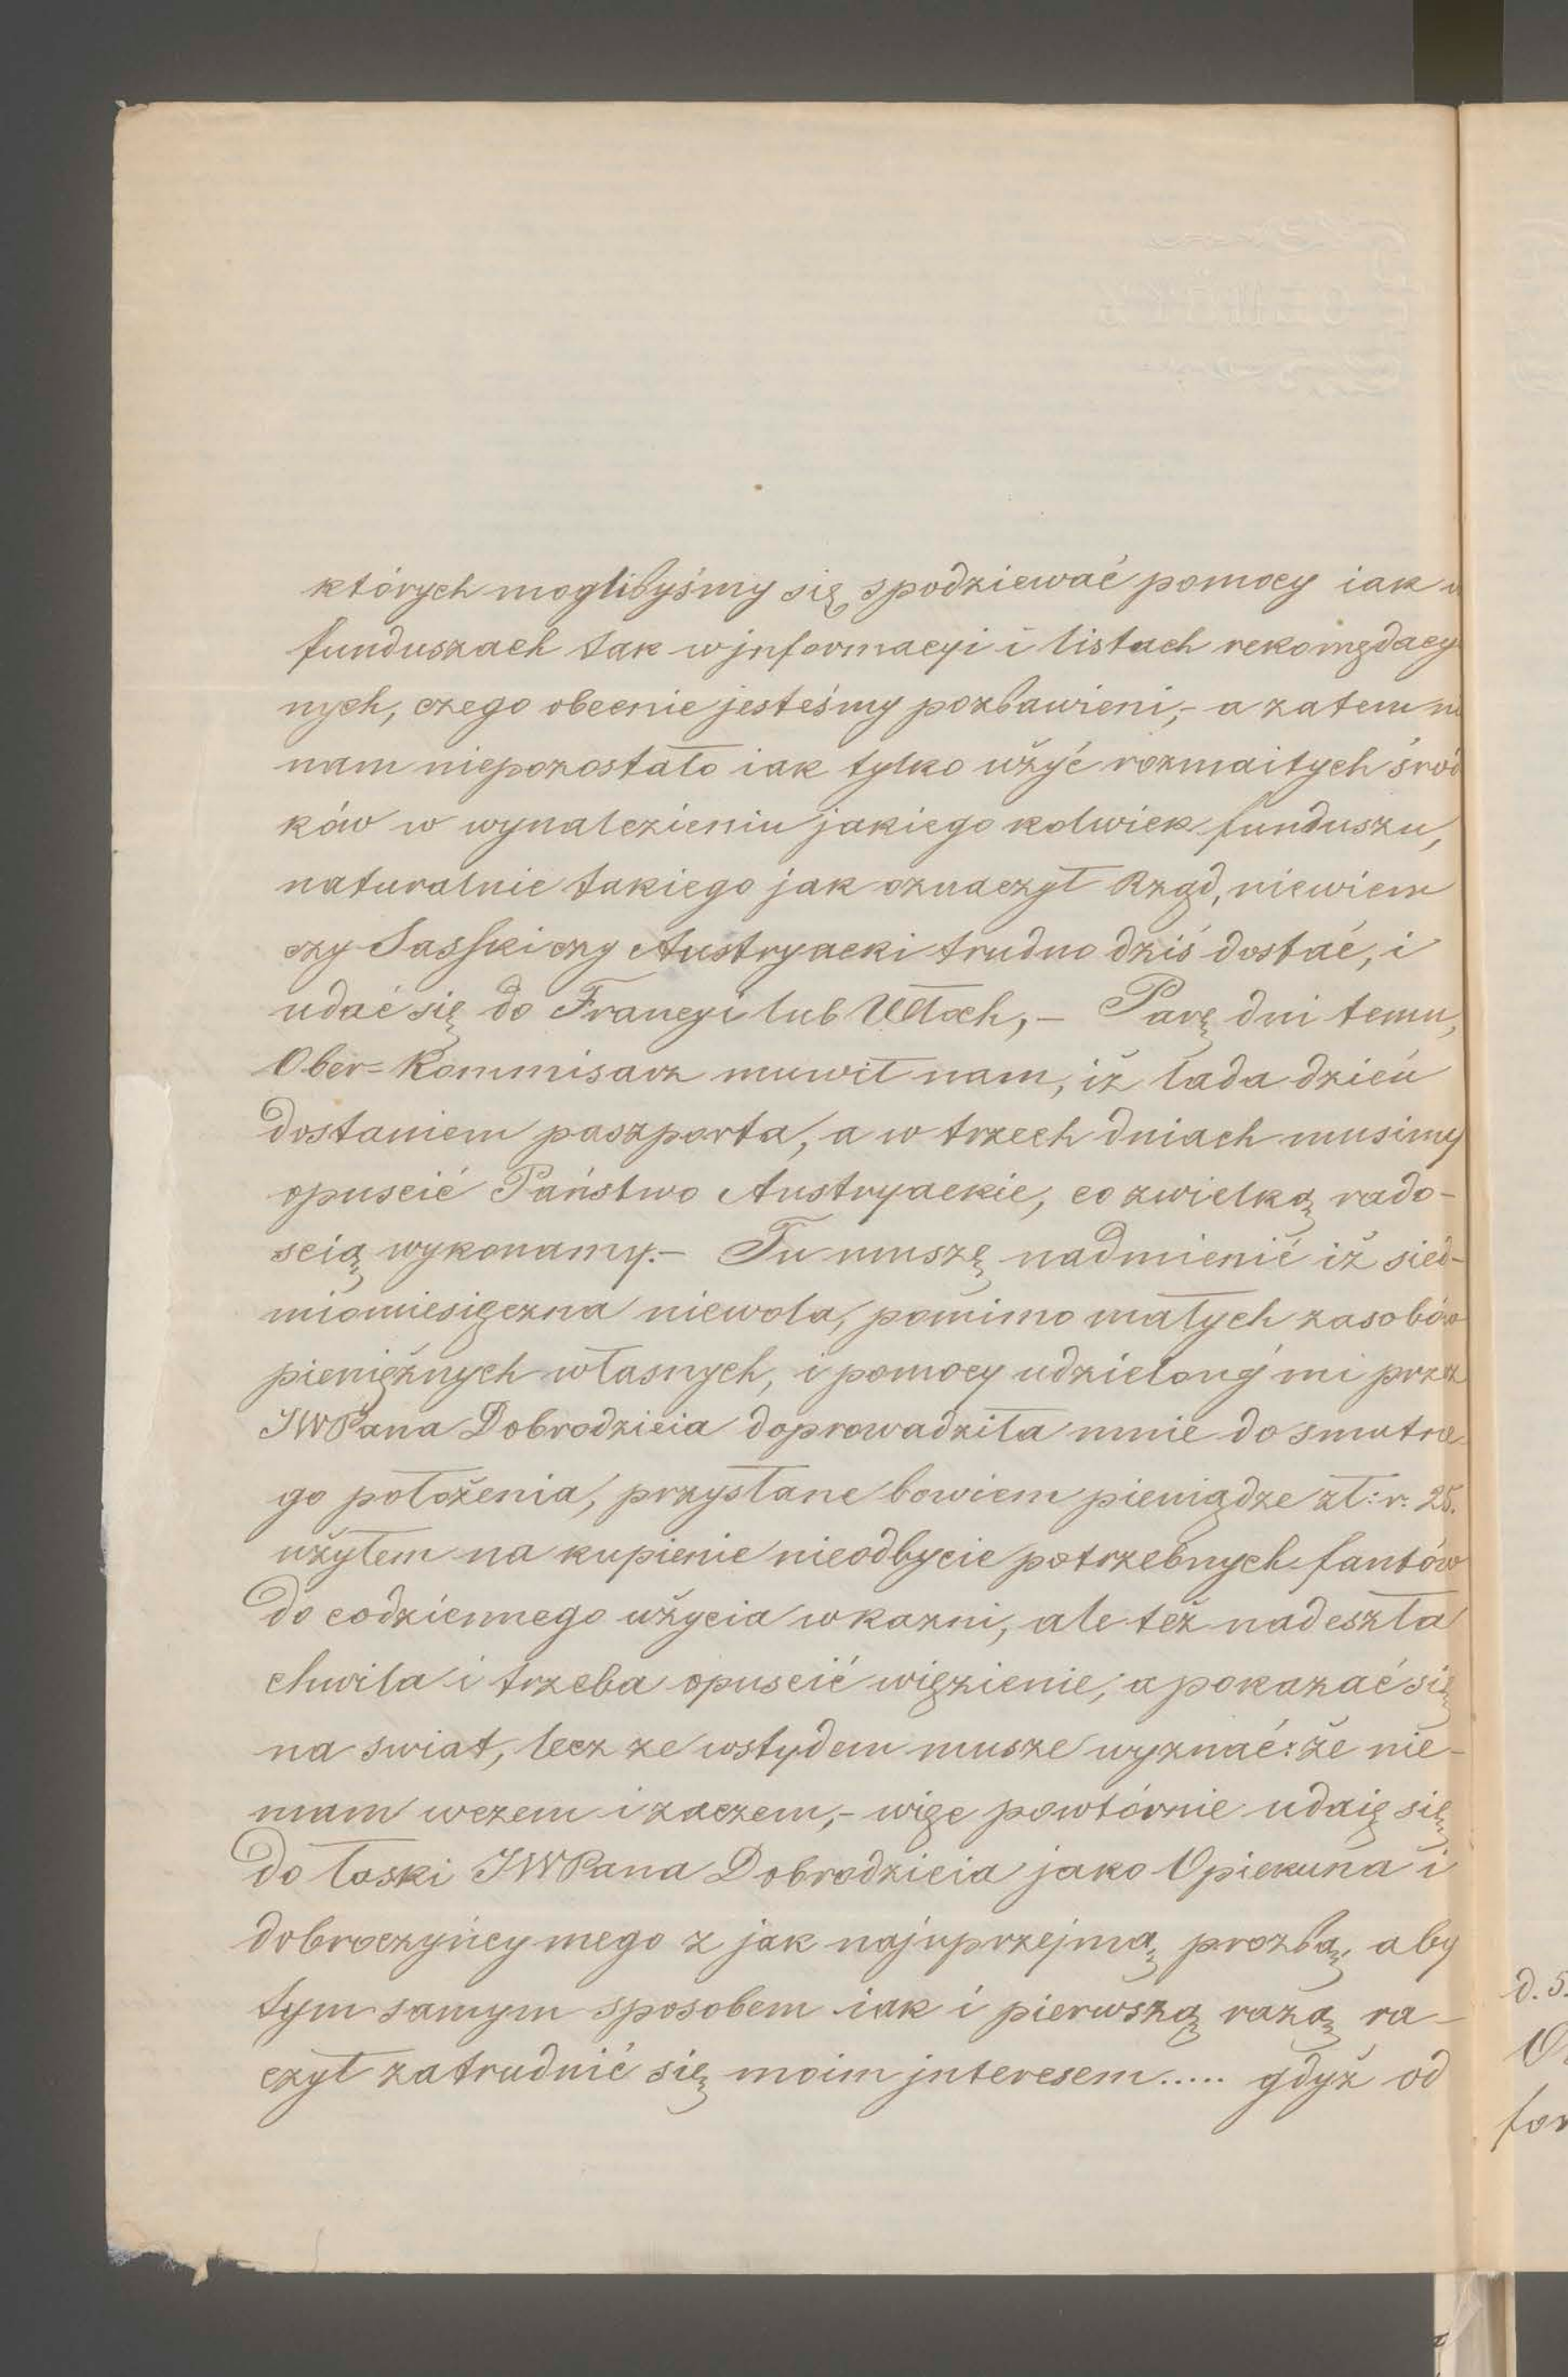 których moglibyśmy się spodziewać pomocy iak w
funduszach tak w jnformacyi i listach rekomędacy
nych, czego obecnie jesteśmy pozbawieni,- a zatem ni
nam niepozostało iak tylko użyć rozmaitych środ
ków w wynalezieniu jakiego kolwiek funduszu,
naturalnie takiego jak oznaczył Rząd, niewiem
czy Sasski czy Austryacki trudno dziś dostać, i
udać się do Francyi lub Włoch,- Parę dni temu,
Ober=Kommisarz muwił nam, iż lada dzień
dostaniem paszporta, a w trzech dniach musimy
opuscić Państwo Austryackie, co zwielką rado-
scią wykonamy.- Tu muszę nadmienić iż sied-
miomiesięczna niewola, pomimo małych zasobów
pieniężnych własnych, i pomocy udzielonéj mi przez
JWPana Dobrodzieia doprowadziła mnie do smutne
go położenia, przysłane bowiem pieniądze zł: r: 25.
użyłem na kupienie nieodbycie potrzebnych fantów
do codziennego użycia w kazni, ale też nadeszła
chwila i trzeba opuscić więzienie, a pokazać się
na swiat, lecz ze wstydem musze wyznać: że nie-
mam wczem i zaczem,- więc powtórnie udaię się
do łaski JWPana Dobrodzieia jako Opiekuna i
dobroczyńcy mego z jak najuprzejmą prozbą, aby
tym samym sposobem iak i pierwszą razą ra-
czył zatrudnić się moim jnteresem..... gdyż od
d. 5.